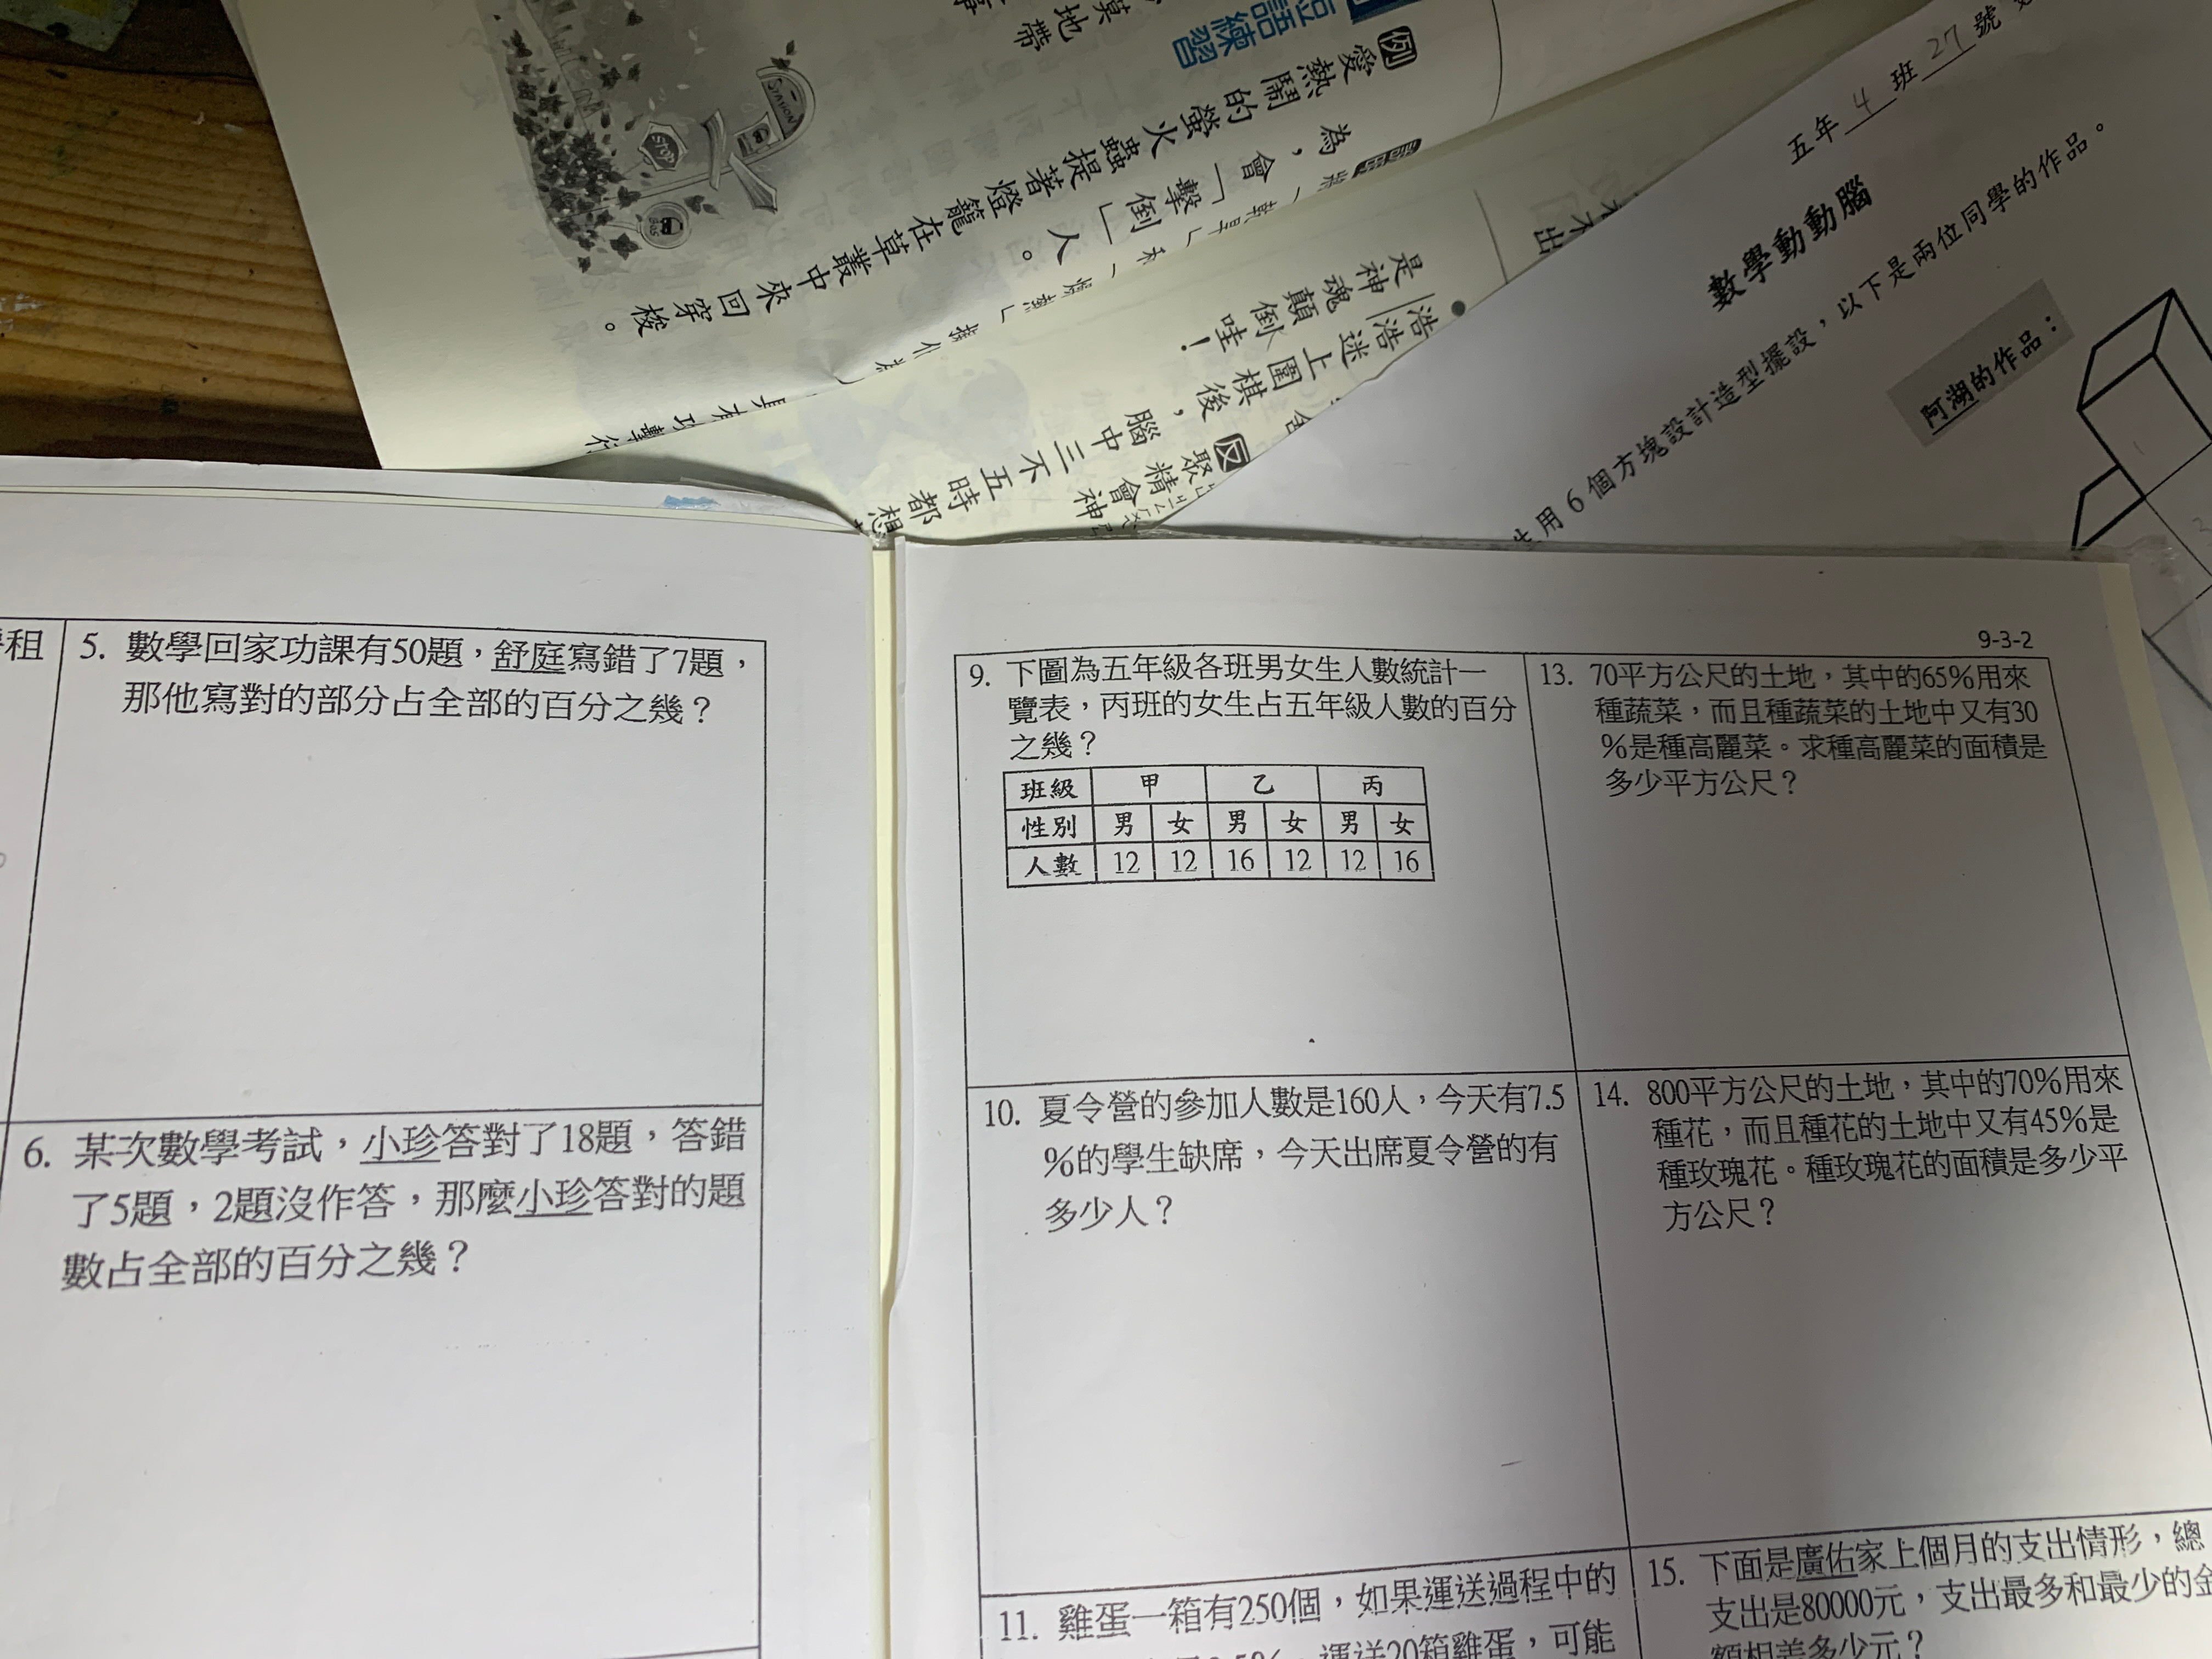 短語練習
例 愛熱鬧的螢火蟲提著燈籠在草叢中來回穿梭。
為,會「擊倒」人。
STATION
STOP
BUS
是神魂顛倒哇!
浩浩迷上圍棋後,腦中三不五時都想
反 聚精會神
五年4班27號
數學動動腦
用6個方塊設計造型擺設,以下是兩位同學的作品。
阿湖的作品:
租
5. 數學回家功課有50題,舒庭寫錯了7題,
那他寫對的部分占全部的百分之幾?
6. 某次數學考試,小珍答對了18題,答錯
了5題,2題沒作答,那麼小珍答對的題
數占全部的百分之幾?
9-3-2
9. 下圖為五年級各班男女生人數統計一
覽表,丙班的女生占五年級人數的百分
之幾?
班級 甲 乙 丙
性別 男 女 男 女 男 女
人數 12 12 16 12 12 16
10. 夏令營的參加人數是160人,今天有7.5
%的學生缺席,今天出席夏令營的有
多少人?
11. 雞蛋一箱有250個,如果運送過程中的
運送20箱雞蛋,可能
13. 70平方公尺的土地,其中的65%用來
種蔬菜,而且種蔬菜的土地中又有30
%是種高麗菜。求種高麗菜的面積是
多少平方公尺?
14. 800平方公尺的土地,其中的70%用來
種花,而且種花的土地中又有45%是
種玫瑰花。種玫瑰花的面積是多少平
方公尺?
15. 下面是廣佑家上個月的支出情形,總
支出是80000元,支出最多和最少的金
額相差多少元?